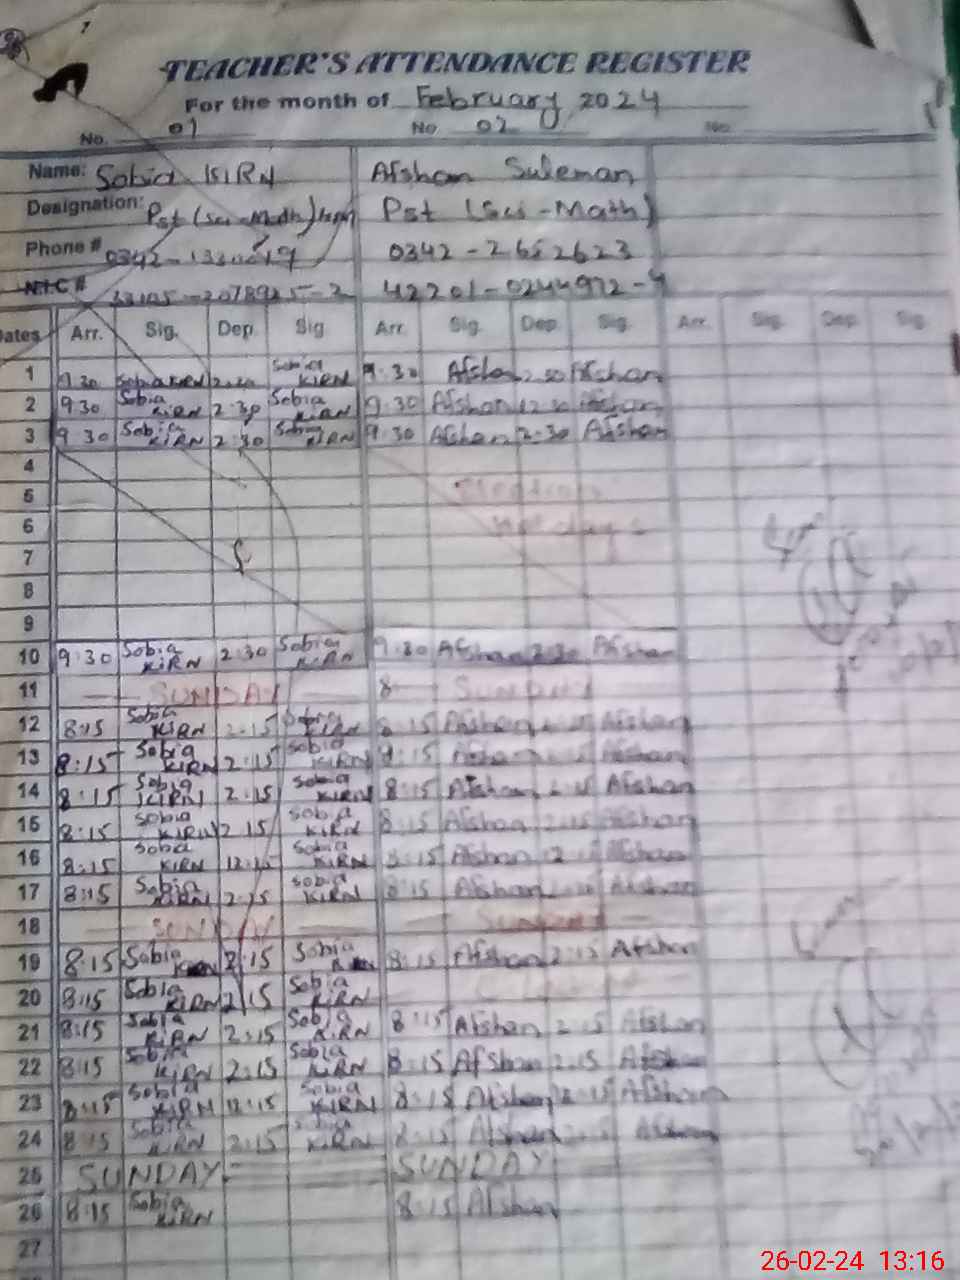 TEACHER'S ATTENDANCE REGISTER
For the month of February, 2024
No. 01 No 02 No.
Name: Sobia KIRN Afshan Suleman
Designation: Pst (Sci-Math) Pst (Sci-Math)
Phone # 0342-2652623
N.I.C # 42201-0244972-
Dates Arr. Sig. Dep. Sig Arr. Sig. Dep. Sig. Arr. Sig. Dep. Sig.
1 9 30 Sobia KIRN 2:30 Sobia KIRN 9:30 Afshan 2 30 Afshan
2 9:30 Sobia KIRN 2:30 Sobia KIRN 9:30 Afshan 12 30 Afshan
3 9 30 Sobia KIRN 2:30 Sobia KIRN 9:30 Afshan 2:30 Afshan
4
5 Election
6 Holidays
7
8
9
10 9:30 Sobia KIRN 2:30 Sobia KIRN 9:30 Afshan 2:30 Afshan
11 SUNDAY SUNDAY
12 8:15 Sobia KIRN 2:15 Sobia KIRN 8:15 Afshan Afshan
13 8:15 Sobia KIRN 2:15 Sobia KIRN 8:15 Afshan Afshan
14 8:15 Sobia KIRN 2:15 Sobia KIRN 8:15 Afshan 2:15 Afshan
15 8:15 Sobia KIRN 2 15 Sobia KIRN 8:15 Afshan 2:15 Afshan
16 8:15 Soba KIRN 12:15 Sobia KIRN 8:15 Afshan 12 Afshan
17 8:15 Sobia KIRN 2:15 Sobia KIRN 8:15 Afshan Afshan
18 SUNDAY SUNDAY
19 8:15 Sobia KIRN 2:15 Sobia 8:15 Afshan 2:15 Afshan
20 8:15 Sobia KIRN 2 15 Sobia KIRN
21 8:15 Sobia KIRN 2:15 Sobia KIRN 8:15 Afshan 2:15 Afshan
22 8:15 Sobia KIRN 2:15 Sobia KIRN 8:15 Afshan 2:15 Afshan
23 8:15 Sobia KIRN 12:15 Sobia KIRN 8:15 Afshan 2:15 Afshan
24 8:15 Sobia KIRN 2:15 KIRN 8:15 Afshan Afshan
25 SUNDAY SUNDAY
26 8:15 Sobia KIRN 8:15 Afshan
27
26-02-24 13:16